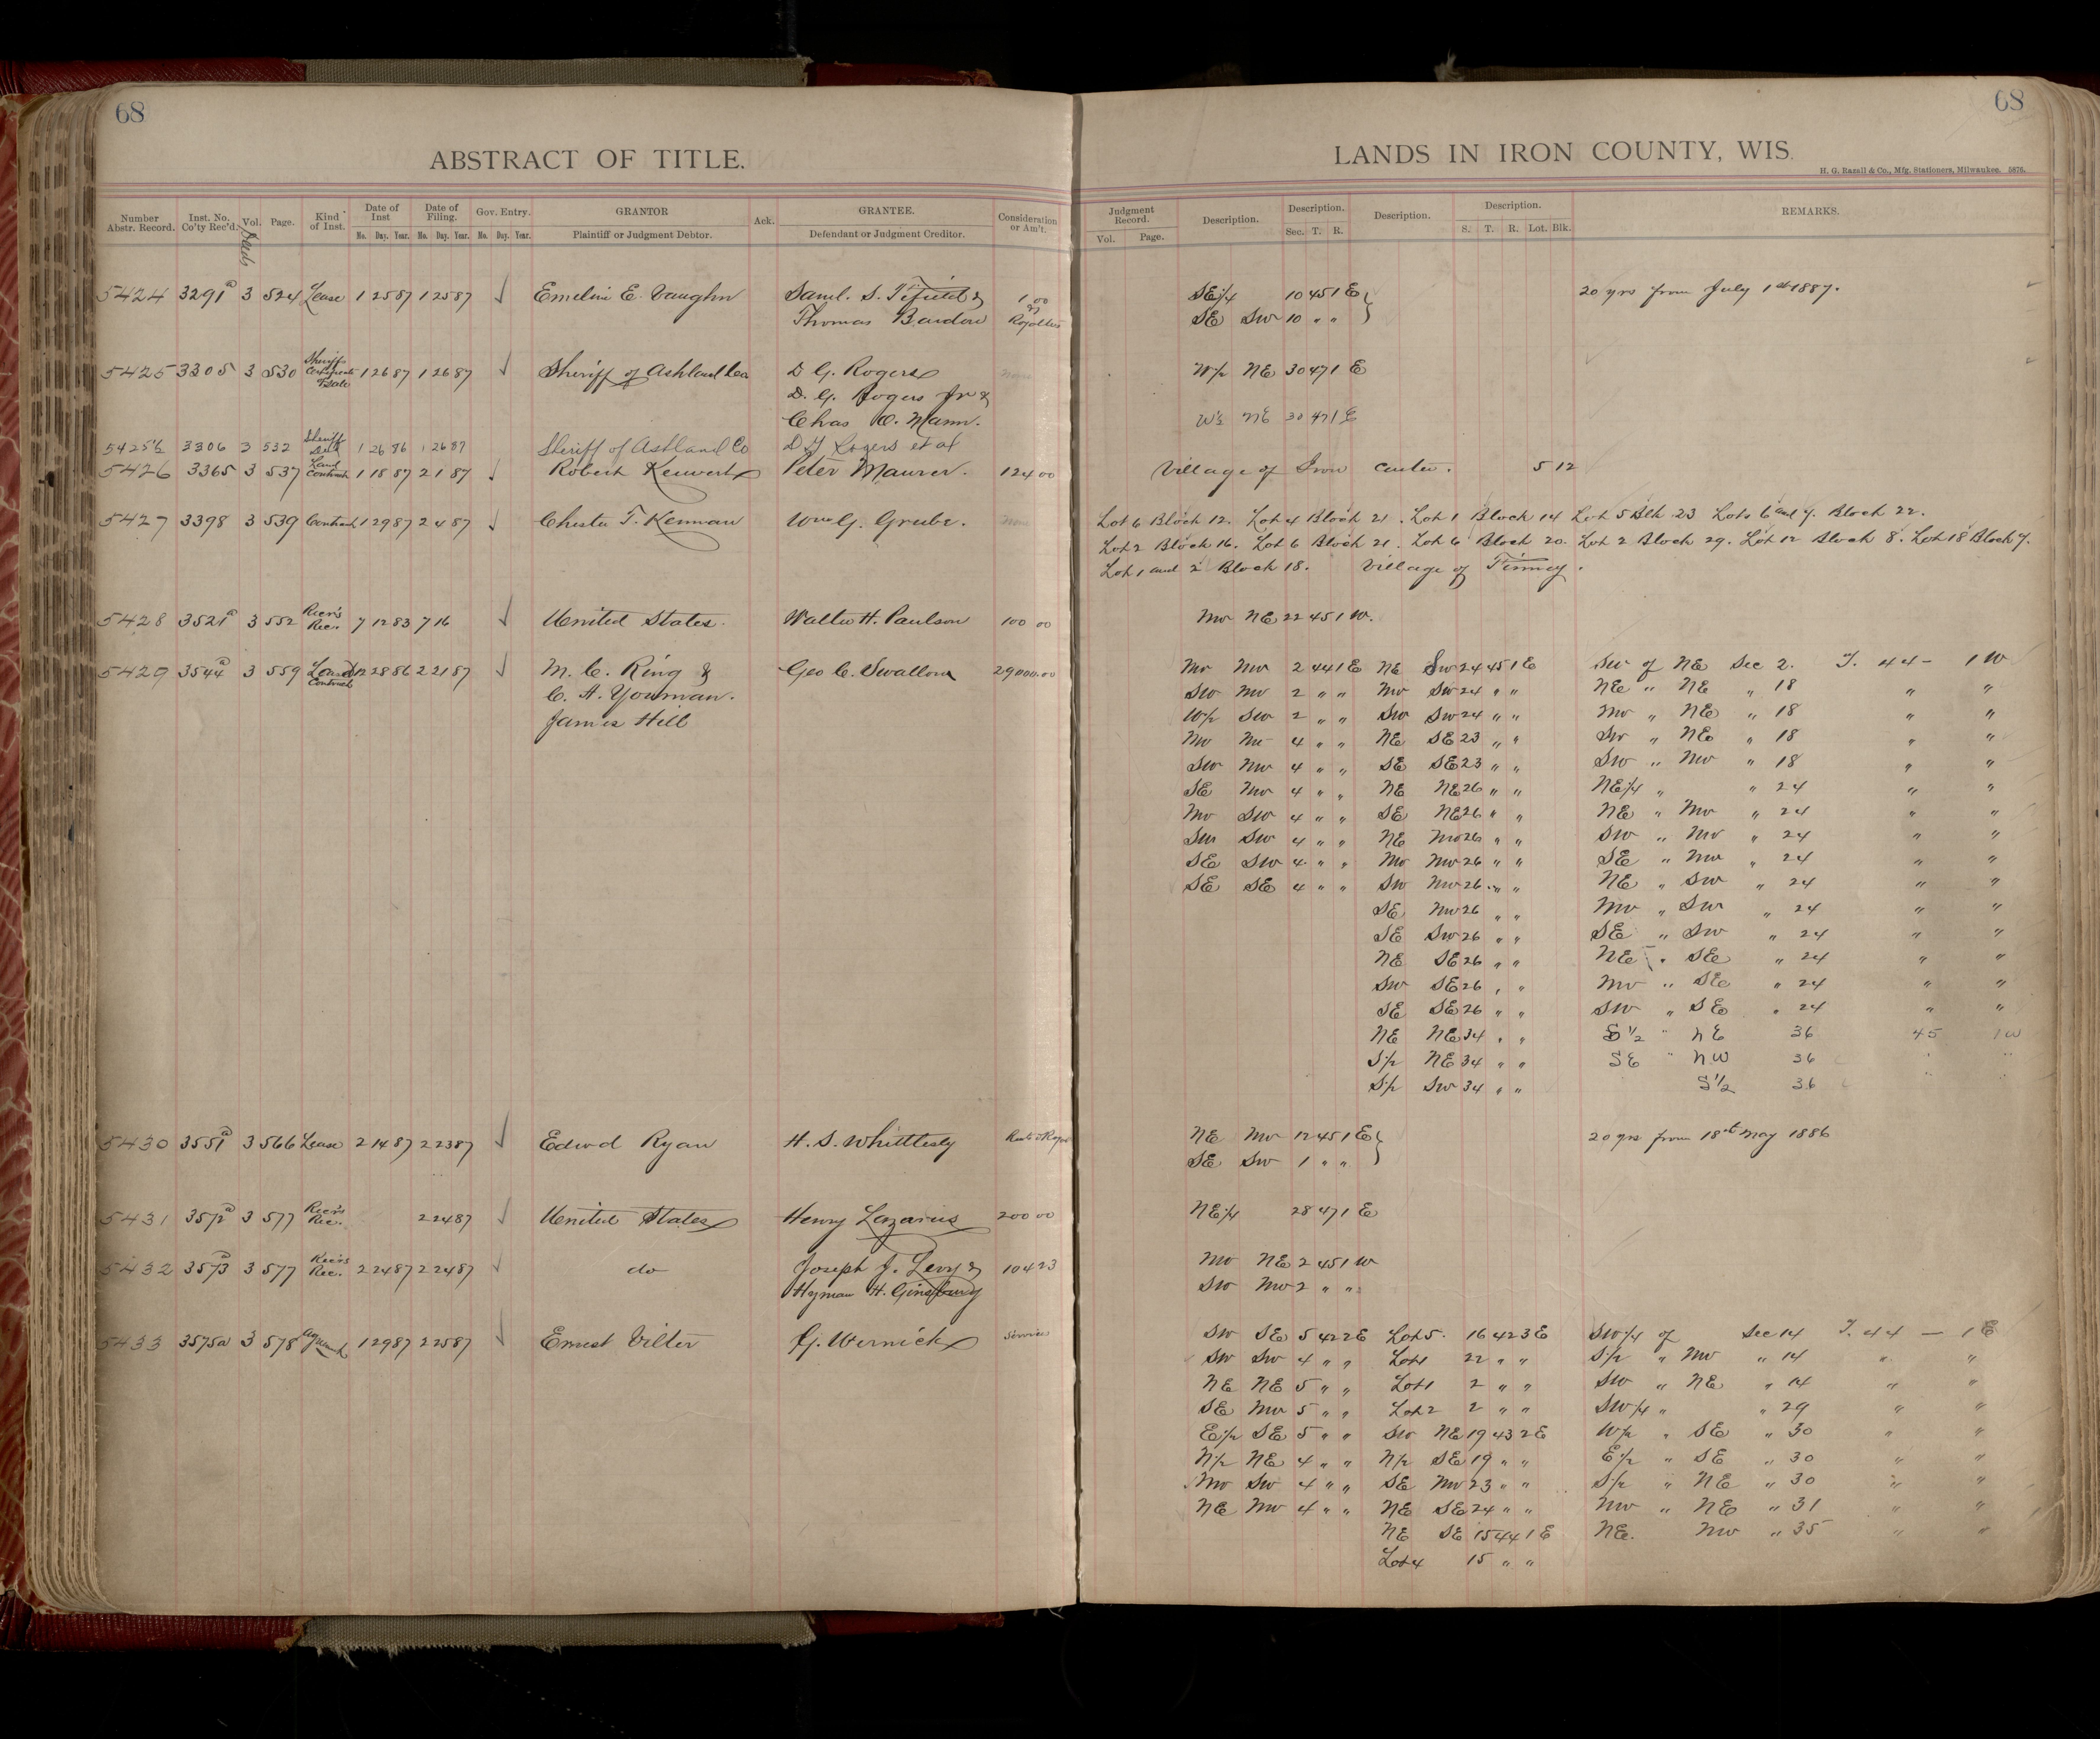 68
ABSTRACT OF TITLE.
Number Abstr. Record. Inst. No. Co'ty Rec'd. Vol. Page. Kind of Inst. Date of Inst Date of Filing. Gov. Entry. GRANTOR Ack. GRANTEE. Consideration or Am't.
Mo. Day. Year. Mo. Day. Year. Mo. Day. Year. Plaintiff or Judgment Debtor. Defendant or Judgment Creditor.
Deeds
5424 3291a 3 524 Lease 1 25 87 1 25 87 Emeline E. Vaughn Saml. S. Fifield & 1.00
Thomas Bardon & Royalties
5425 3305 3 530 Sheriffs Certificate of Sale 1 26 87 1 26 87 Sheriff of Ashland Co D G. Rogers none
D. G. Rogers Jr &
Chas O. Mann.
5425½ 3306 3 532 Sheriff Deed 1 26 86 1 26 87 Sheriff of Ashland Co D G Rogers et al
5426 3365 3 537 Land Contract 1 18 87 2 1 87 Robert Peter Maurer. 124 00
5427 3398 3 539 Contract 1 29 87 2 4 87 Chester T. Kennan Wm G. Grube. none
5428 3521a 3 552 Rcer's Rec. 7 12 83 7 16 United States. Walter H. Paulson 100 00
5429 3544a 3 559 Land Contract 12 28 86 2 21 87 M. C. Ring & Geo C. Swallow 29000.00
C. A. Youman.
James Hill
5430 3551a 3 566 Lease 2 14 87 2 23 87 Edwd Ryan H. S. Whittlesy
5431 3572a 3 577 Rcer's Rec. 2 24 87 United States Henry Lazarus 200 00
5432 3573a 3 577 Rcer's Rec. 2 24 87 2 24 87 do Joseph J. Levy & 104 23
Hyman H. Ginsburg
5433 3575a 3 578 1 29 87 2 25 87 Ernest Vilter G. Wernick Services
68
LANDS IN IRON COUNTY, WIS.
H. G. Razall & Co., Mfg. Stationers, Milwaukee. 5876.
Judgment Record. Description. Description. Description. Description. REMARKS.
Vol. Page. Sec. T. R. S. T. R. Lot. Blk.
SE¼ 10 45 1 E 20 yrs from July 1st 1887.
SE SW 10 " "
W½ NE 30 47 1 E
W½ NE 30 47 1 E
Village of Iron Center. 5 12
Lot 6 Block 12. Lot 4 Block 21. Lot 1 Block 14 Lot 5 Blk 23 Lots 6 and 7. Block 22.
Lot 2 Block 16. Lot 6 Block 21. Lot 6 Block 20. Lot 2 Block 29. Lot 12 Block 8. Lot 18 Block 7.
Lot 1 and 2 Block 18. Village of Finney.
NW NE 22 45 1 W.
NW NW 2 44 1 E NE SW 24 45 1 E SW of NE Sec 2. T. 44 - 1 W
SW NW 2 " " NW SW 24 " " NE " NE " 18 " "
W½ SW 2 " " SW SW 24 " " NW " NE " 18 " "
NW NE 4 " " NE SE 23 " " SW " NE " 18 " "
SW NW 4 " " SE SE 23 " " SW " NW " 18 " "
SE NW 4 " " NE NE 26 " " NE¼ " " 24 " "
NW SW 4 " " SE NE 26 " " NE " NW " 24 " "
SW SW 4 " " NE NW 26 " " SW " NW " 24 " "
SE SW 4 " " NW NW 26 " " SE " NW " 24 " "
SE SE 4 " " SW NW 26 " " NE " SW " 24 " "
SE NW 26 " " NW " SW " 24 " "
SE SW 26 " " SE " SW " 24 " "
NE SE 26 " " NE " SE " 24 " "
SW SE 26 " " NW " SE " 24 " "
SE SE 26 " " SW " SE " 24 " "
NE NE 34 " " S ½ " NE 36 45 1 W
S½ NE 34 " " SE " NW 36 " "
S½ SW 34 " " S ½ 36 " "
NE NW 12 45 1 E 20 yrs from 18th May 1886
SE SW 1 " "
NE¼ 28 47 1 E
NW NE 2 45 1 W
SW NW 2 " "
SW SE 5 42 2 E Lot 5. 16 42 3 E SW¼ of Sec 14 T. 44 — 1 E
SW SW 4 " " Lot 1 22 " " S½ " NW " 14 " "
NE NE 5 " " Lot 1 2 " " SW " NE " 14 " "
SE NW 5 " " Lot 2 2 " " SW¼ " " 29 " "
E½ SE 5 " " SW NE 19 43 2 E W½ " SE " 30 " "
N½ NE 4 " " N½ SE 19 " " E½ " SE " 30 " "
NW SW 4 " " SE NW 23 " " S½ " NE " 30 " "
NE NW 4 " " NE SE 24 " " NW " NE " 31 " "
NE SE 15 44 1 E NE. NW " 35 " "
Lot 4 15 " "